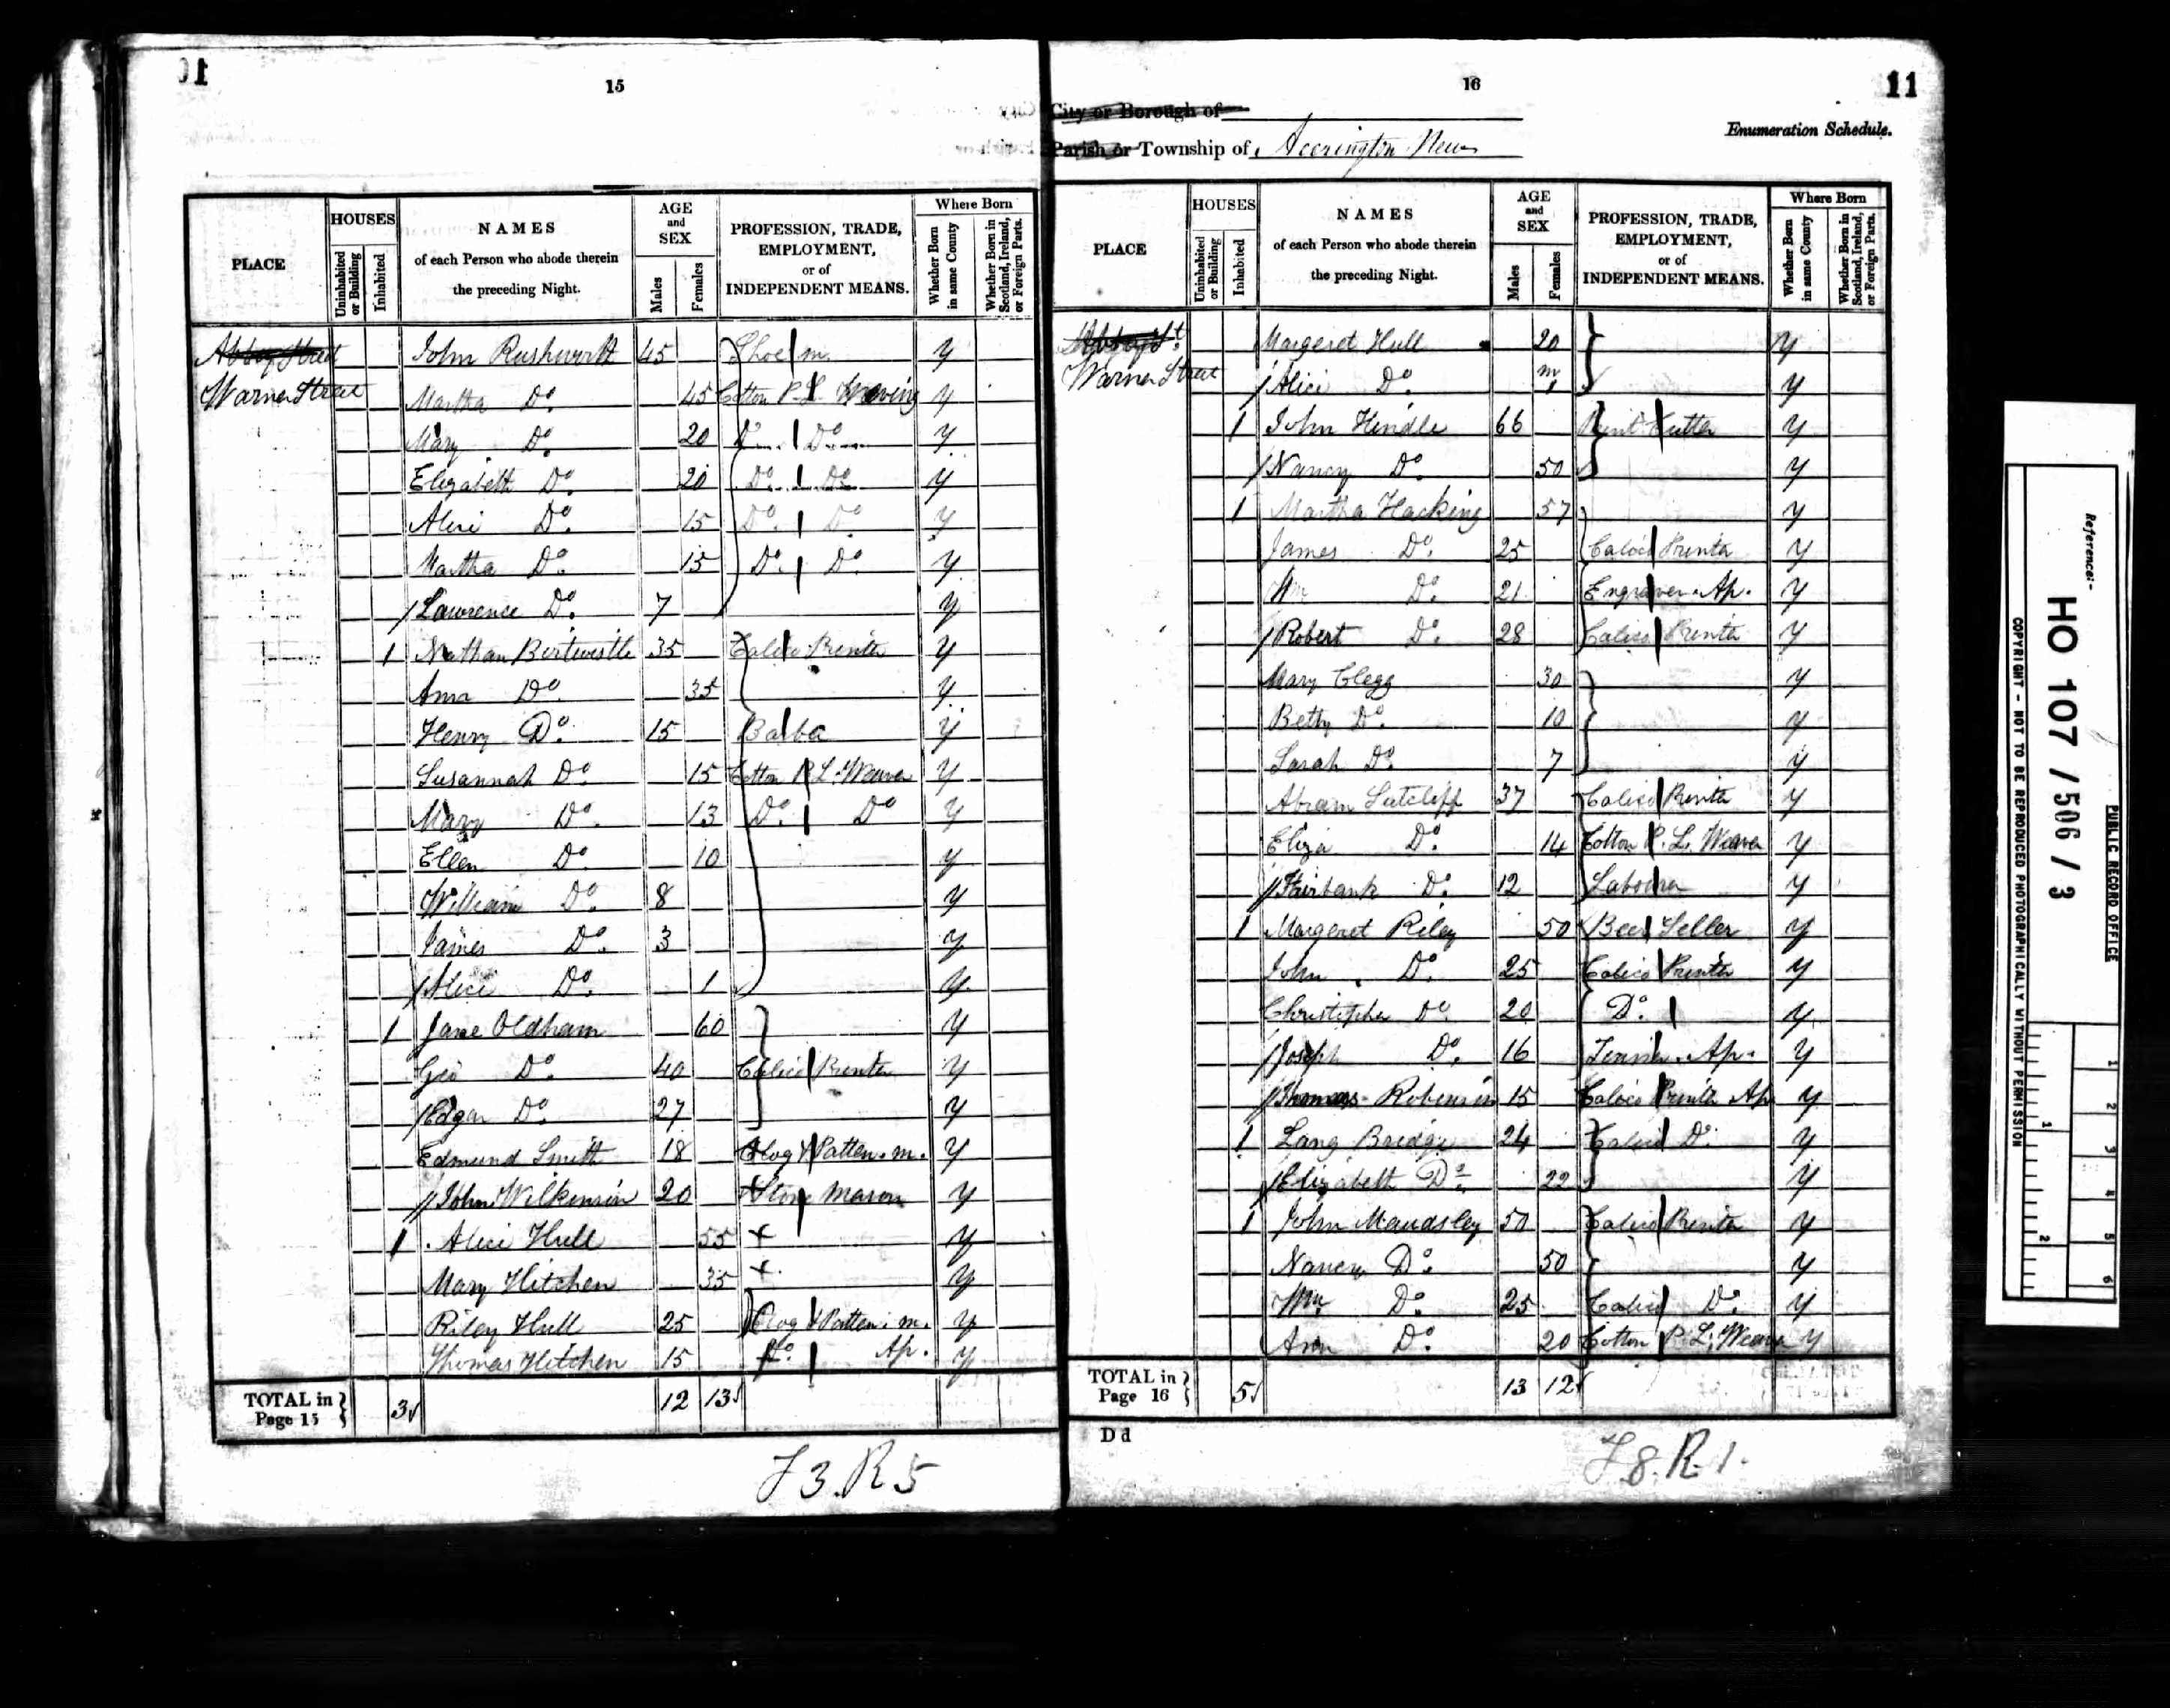 15
PLACE
HOUSES
Uninhabited or Building
Inhabited
NAMES
of each Person who abode therein
the preceding Night.
AGE
and
SEX
Males
Females
PROFESSION, TRADE,
EMPLOYMENT,
or of
INDEPENDENT MEANS.
Where Born
Whether Born in same County
Whether Born in Scotland, Ireland, or Foreign Parts.
Abbey Street John Rushworth 45 Shoe m. y
Warner Street Martha Do. 45 Cotton P. L. Weaving y
Mary Do. 20 Do. Do. y
Elizabeth Do. 20 Do. Do. y
Alice Do. 15 Do. Do. y
Martha Do. 15 Do. Do. y
Lawrence Do. 7 y
1 Nathan Birtwistle 35 Calico Printer y
Ann Do. 35 y
Henry Do. 15 Barber y
Susannah Do. 15 Cotton P. L. Weaver y
Mary Do. 13 Do. Do y
Ellen Do. 10 y
William Do. 8 y
James Do. 3 y
Alice Do. 1 y
1 Jane Oldham 60 y
Geo Do. 40 Calico Printer y
Edgar Do. 27 y
Edmund Smith 18 Clog & Patten. m. y
John Wilkinson 20 Stone Mason y
1 Alice Hull 55 y
Mary Hitchen 35 y
Riley Hull 25 Clog & Patten. m. y
Thomas Hitchen 15 Do. Ap. y
TOTAL in Page 15 3 12 13
F 3. R 5
16
11
City or Borough of
Enumeration Schedule.
Parish or Township of Accrington New
PLACE
HOUSES
Uninhabited or Building
Inhabited
NAMES
of each Person who abode therein
the preceding Night.
AGE
and
SEX
Males
Females
PROFESSION, TRADE,
EMPLOYMENT,
or of
INDEPENDENT MEANS.
Where Born
Whether Born in same County
Whether Born in Scotland, Ireland, or Foreign Parts.
Abbey St. Margeret Hull 20 y
Warner Street Alice Do. m y
1 John Hindle 66 Print Cutter y
Nancy Do. 50 y
1 Martha Hacking 57 y
James Do. 25 Calico Printer y
Wm Do. 21 Engraver Ap. y
Robert Do. 28 Calico Printer y
Mary Clegg 30 y
Betty Do. 10 y
Sarah Do. 7 y
Abram Sutcliff 37 Calico Printer y
Eliza Do. 14 Cotton P. L. Weaver y
Fairbank Do. 12 Labourer y
1 Margeret Riley 50 Beer Seller y
John Do. 25 Calico Printer y
Christopher Do. 20 Do. y
Joseph Do. 16 Ap. y
Thomas Robinson 15 Calico Printer Ap y
1 Lang Bridge 24 Calico Do. y
Elizabeth Do. 22 y
1 John Maudsley 50 Calico Printer y
Nancy Do. 50 y
Wm Do. 25 Calico Do. y
Ann Do. 20 Cotton P. L. Weaver y
TOTAL in Page 16 5 13 12
D d
F. 8. R. 1.
PUBLIC RECORD OFFICE
Reference:-
HO 107 / 506 / 3
COPYRIGHT - NOT TO BE REPRODUCED PHOTOGRAPHICALLY WITHOUT PERMISSION
1
2
1 2 3 4 5 6